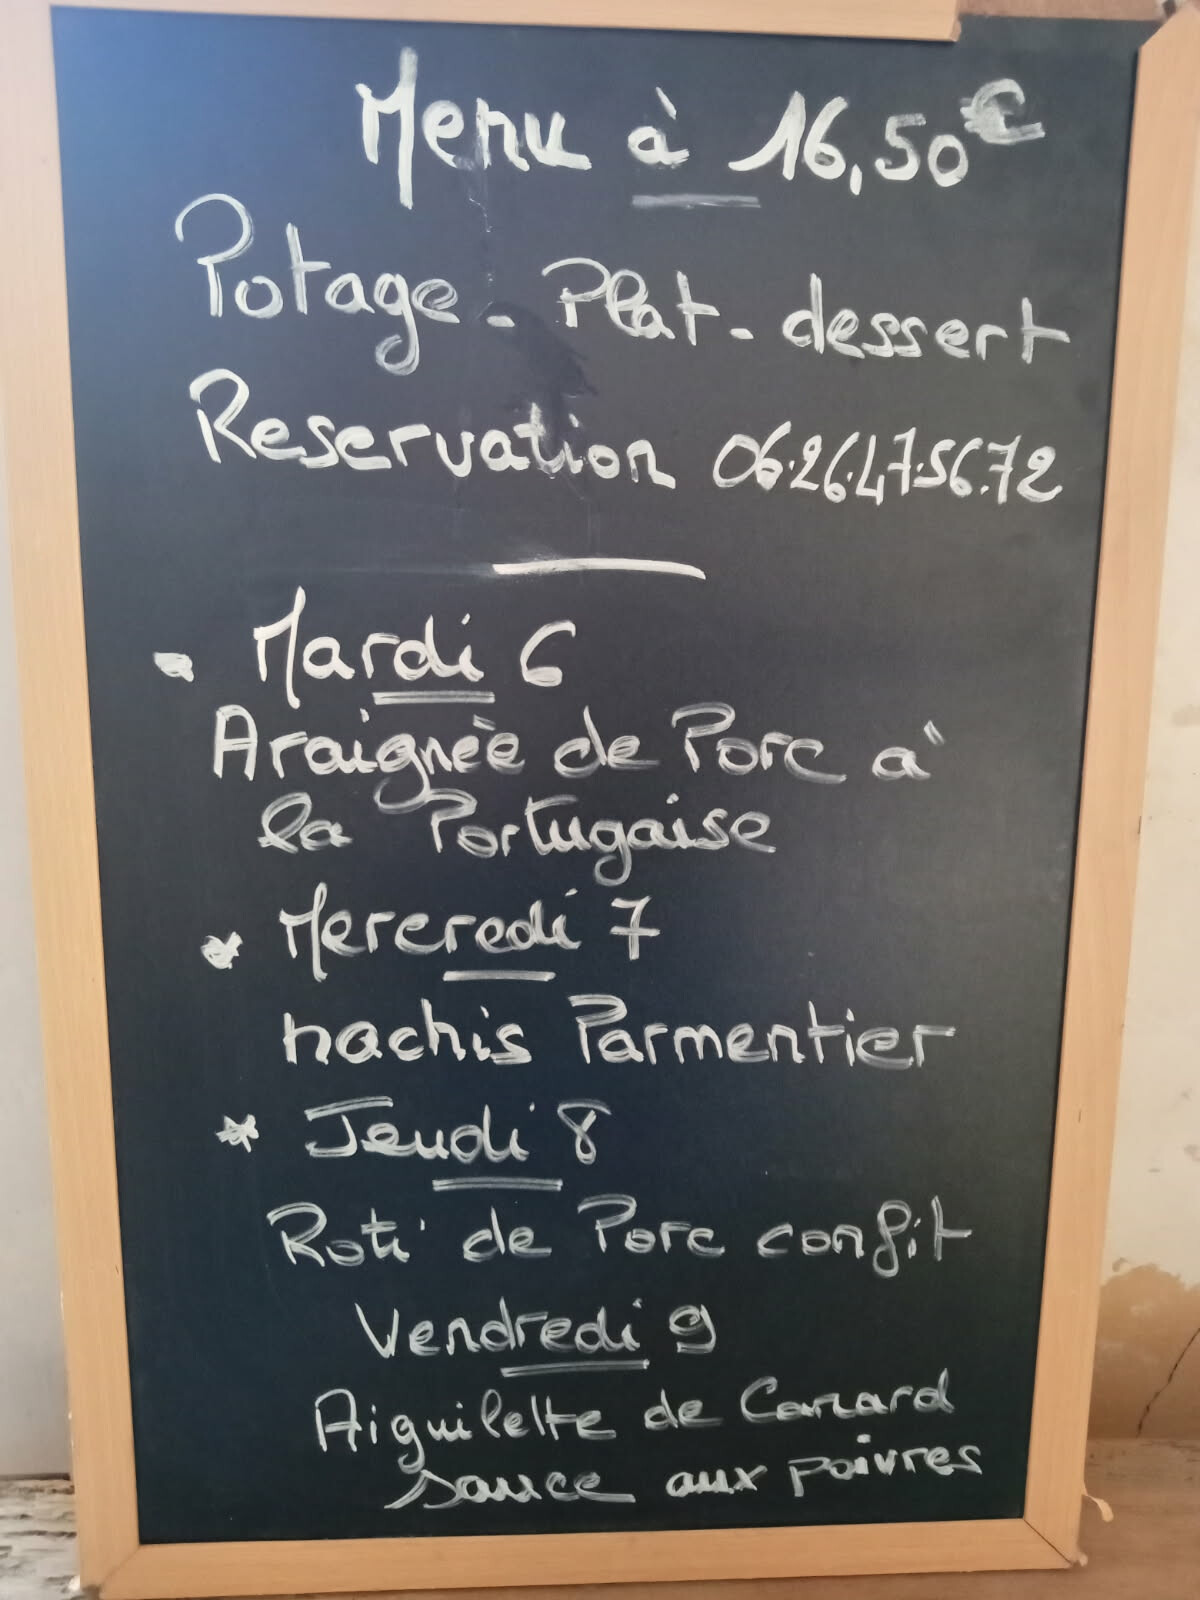 Menu à 16,50€
Potage - Plat - dessert
Reservation 06.26.47.56.72
- Mardi 6
Araignèe de Porc à
la Portugaise
* Mercredi 7
hachis Parmentier
* Jeudi 8
Roti de Porc confit
Vendredi 9
Aiguilette de Canard
sauce aux poivres